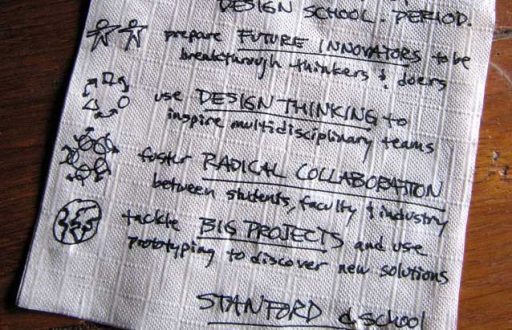 DESIGN SCHOOL. PERIOD.
prepare FUTURE INNOVATORS to be
breakthrough thinkers & doers
use DESIGN THINKING to
inspire multidisciplinary teams
foster RADICAL COLLABORATION
between students, faculty & industry
tackle BIG PROJECTS and use
prototyping to discover new solutions
STANFORD d.school